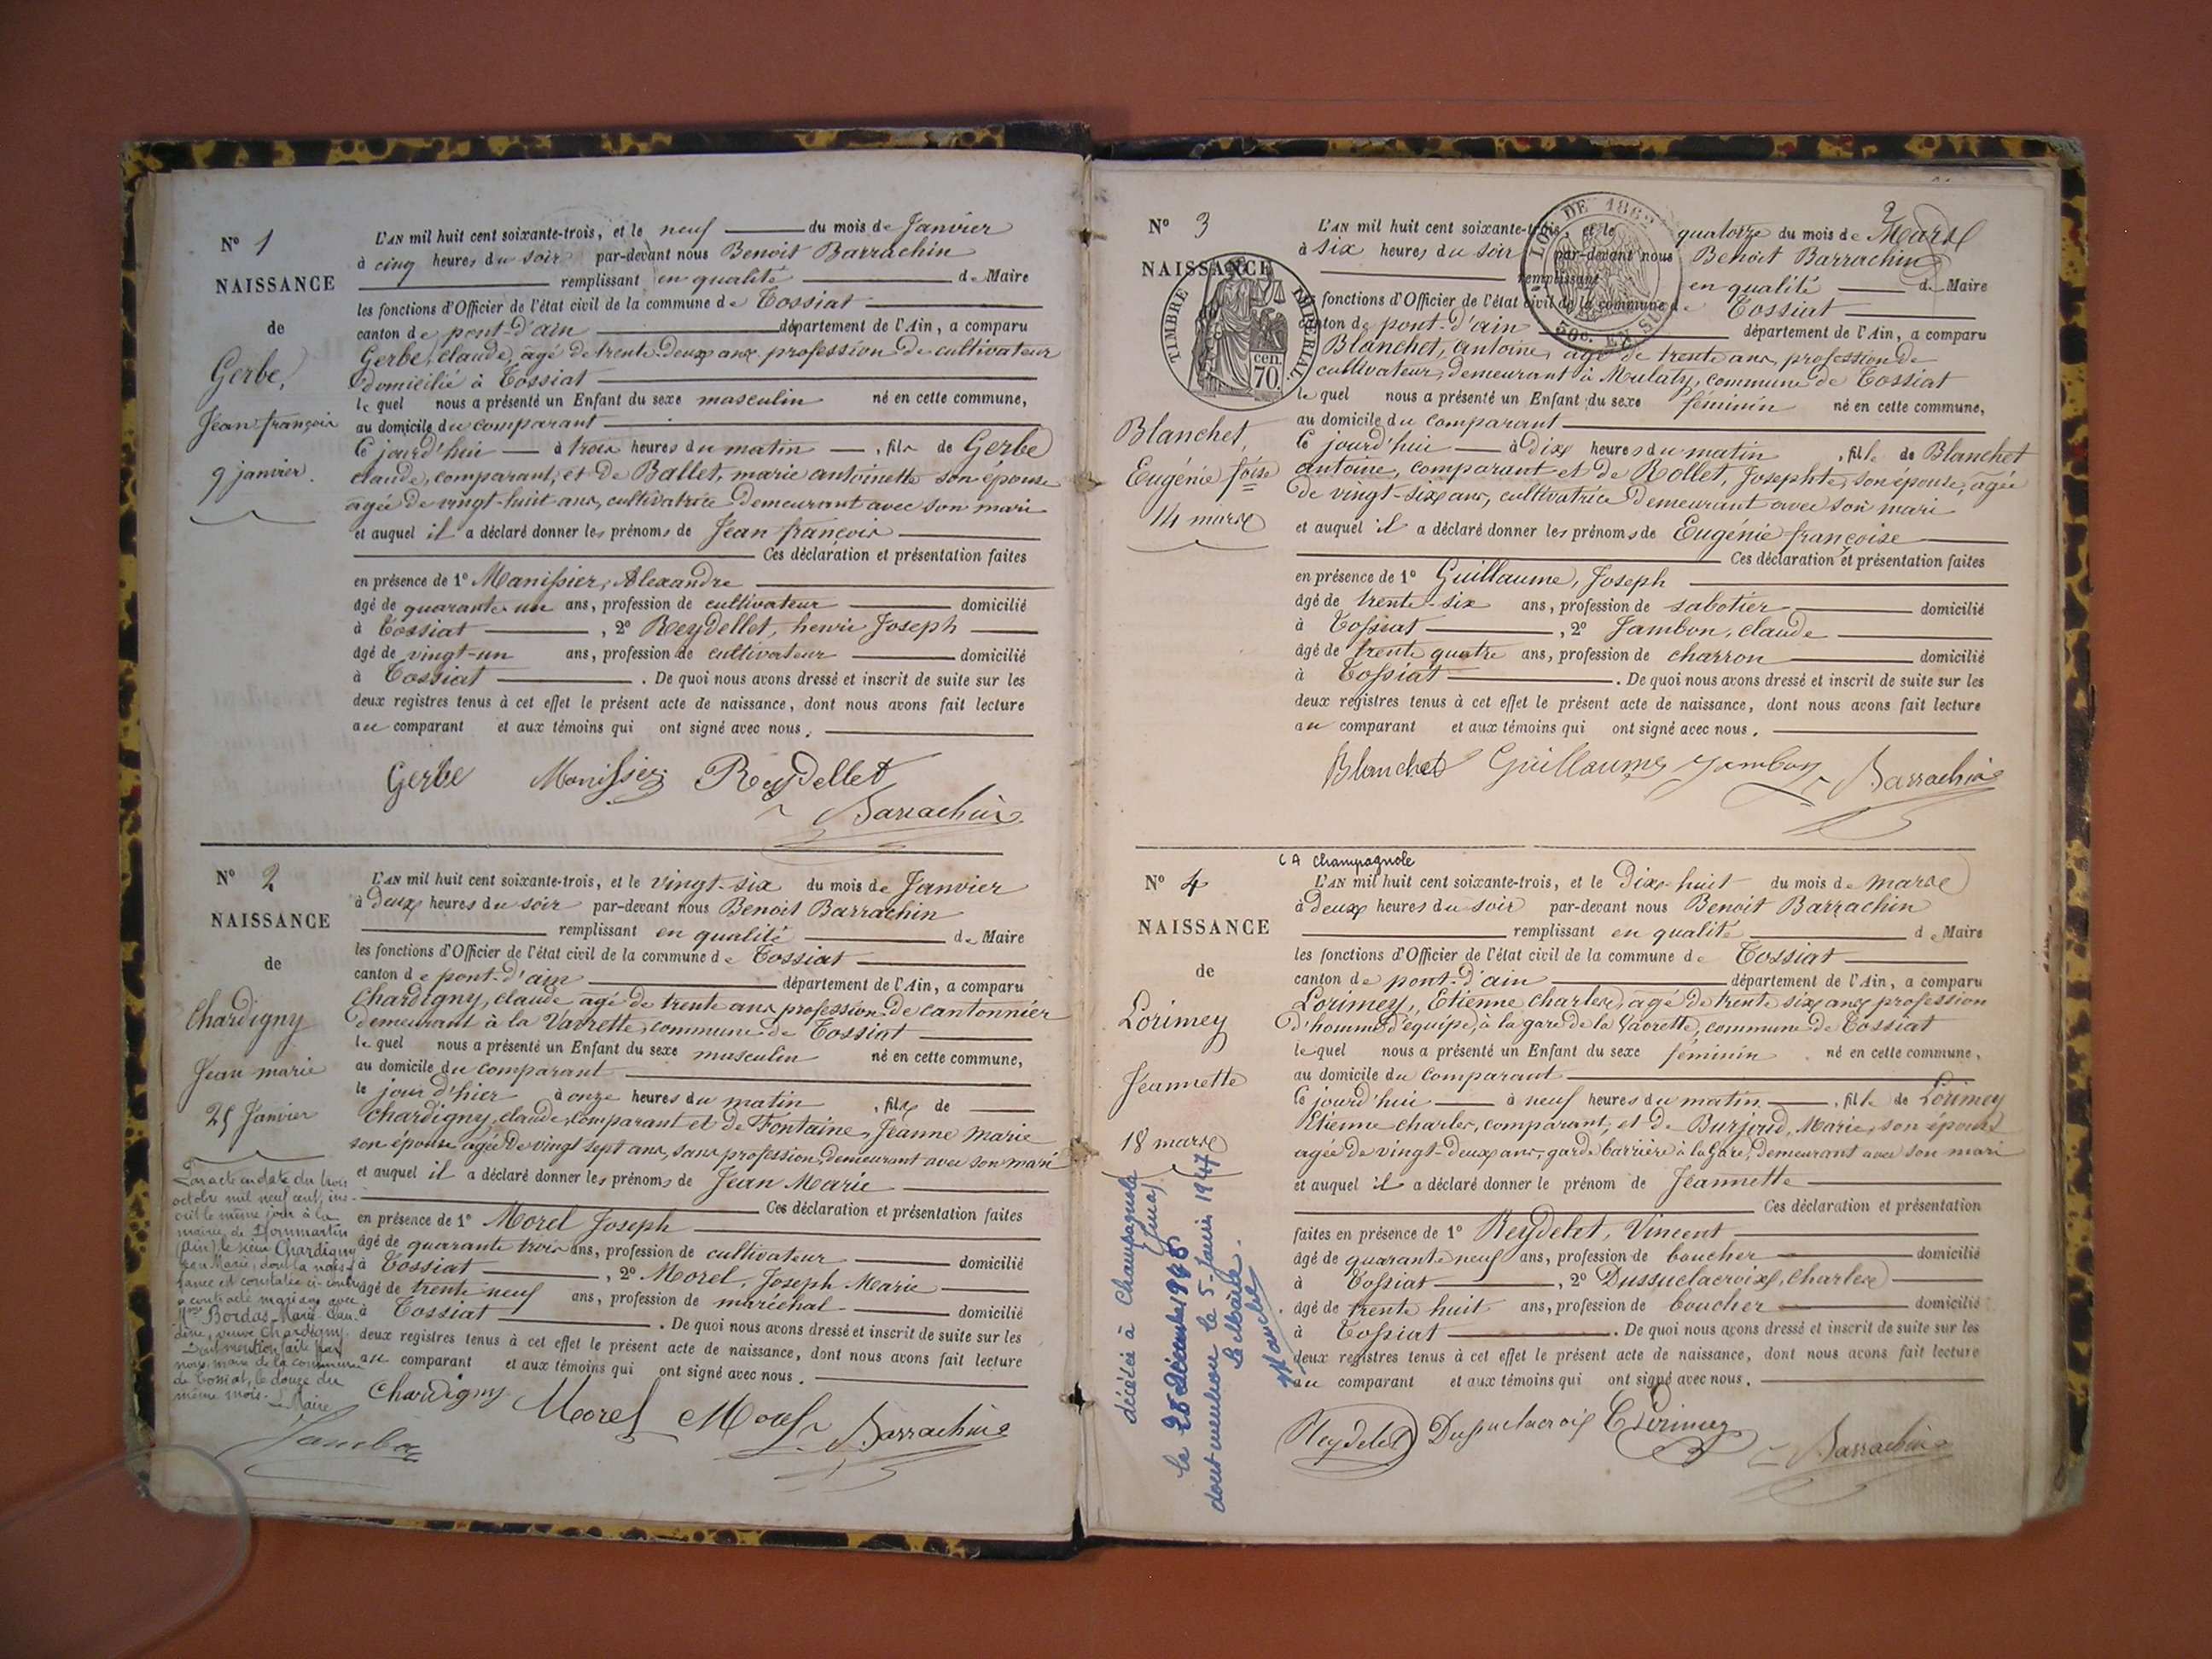 Nº 1
NAISSANCE
de
Gerbe,
Jean françois
9 janvier.
L'AN mil huit cent soixante-trois, et le neuf du mois de Janvier
à cinq heures du soir par-devant nous Benoit Barrachin
remplissant en qualité de Maire
les fonctions d'Officier de l'état civil de la commune de Tossiat
canton de pont-d'ain département de l'Ain, a comparu
Gerbe, claude, agé de trente-deux ans profession de cultivateur
domicilié à Tossiat
lequel nous a présenté un Enfant du sexe masculin né en cette commune,
au domicile du comparant
Ce jourd'hui à trois heures du matin , fils de Gerbe
claude, comparant, et de Ballet, marie antoinette son épouse
agée de vingt-huit ans, cultivatrice demeurant avec son mari
et auquel il a déclaré donner les prénoms de Jean françois
Ces déclaration et présentation faites
en présence de 1º Manissier, Alexandre
âgé de quarante un ans, profession de cultivateur domicilié
à Tossiat , 2º Reydellet, henri Joseph
âgé de vingt-un ans, profession de cultivateur domicilié
à Tossiat . De quoi nous avons dressé et inscrit de suite sur les
deux registres tenus à cet effet le présent acte de naissance, dont nous avons fait lecture
au comparant et aux témoins qui ont signé avec nous.
Gerbe Manissier Reydellet
Barrachin
Nº 2
NAISSANCE
de
Chardigny
Jean marie
25 Janvier
Par acte en date du trois
octobre mil neuf cent, ins-
crit le même jour à la
mairie de Dommartin
(Ain) le sieur Chardigny
Jean Marie, dont la nais-
sance est constatée ci-contre
a contracté mariage avec
Mme Bordas Marie Clau-
dine, veuve Chardigny.
Dont mention faite par
nous, maire de la commune
de Tossiat, le douze du
même mois. Le Maire
Jambon
L'AN mil huit cent soixante-trois, et le vingt-six du mois de Janvier
à deux heures du soir par-devant nous Benoit Barrachin
remplissant en qualité de Maire
les fonctions d'Officier de l'état civil de la commune de Tossiat
canton de pont-d'ain département de l'Ain, a comparu
Chardigny, claude agé de trente ans profession de cantonnier
demeurant à la Vavrette, commune de Tossiat
lequel nous a présenté un Enfant du sexe masculin né en cette commune,
au domicile du comparant
le jour d'hier à onze heures du matin , fils de
chardigny, claude, comparant et de Fontaine, Jeanne Marie
son épouse agée de vingt sept ans, sans profession, demeurant avec son mari
et auquel il a déclaré donner les prénoms de Jean Marie
Ces déclaration et présentation faites
en présence de 1º Morel Joseph
âgé de quarante trois ans, profession de cultivateur domicilié
à Tossiat , 2º Morel, Joseph Marie
âgé de trente neuf ans, profession de maréchal domicilié
à Tossiat . De quoi nous avons dressé et inscrit de suite sur les
deux registres tenus à cet effet le présent acte de naissance, dont nous avons fait lecture
au comparant et aux témoins qui ont signé avec nous.
Chardigny Morel Morel Barrachin
2
Nº 3
NAISSANCE
TIMBRE IMPERIAL
cen.
70.
Blanchet,
Eugénie foise
14 mars
LOI DE 1862
50c. EN SUS
L'AN mil huit cent soixante-trois, et le quatorze du mois de Mars
à six heures du soir par-devant nous Benoit Barrachin
remplissant en qualité de Maire
les fonctions d'Officier de l'état civil de la commune de Tossiat
canton de pont-d'ain département de l'Ain, a comparu
Blanchet, antoine, agé de trente ans, profession de
cultivateur, demeurant à Mulaty, commune de Tossiat
lequel nous a présenté un Enfant du sexe féminin né en cette commune,
au domicile du comparant
Ce jourd'hui à dix heures du matin , fille de Blanchet
antoine, comparant et de Rollet, Josephte, son épouse, agée
de vingt-six ans, cultivatrice demeurant avec son mari
et auquel il a déclaré donner les prénoms de Eugénie françoise
Ces déclaration et présentation faites
en présence de 1º Guillaume, Joseph
âgé de trente-six ans, profession de sabotier domicilié
à Tossiat , 2º Jambon, claude
âgé de trente quatre ans, profession de charron domicilié
à Tossiat . De quoi nous avons dressé et inscrit de suite sur les
deux registres tenus à cet effet le présent acte de naissance, dont nous avons fait lecture
au comparant et aux témoins qui ont signé avec nous.
Blanchet Guillaume Jambon Barrachin
Nº 4
NAISSANCE
de
Lorimey
Jeannette
18 mars
décédée à Champagnole
(Jura)
le 28 Décembre 1946
dont mention le 5 Janvier 1947
Le Maire.
à Champagnole
L'AN mil huit cent soixante-trois, et le Dix-huit du mois de mars
à deux heures du soir par-devant nous Benoit Barrachin
remplissant en qualité de Maire
les fonctions d'Officier de l'état civil de la commune de Tossiat
canton de pont-d'ain département de l'Ain, a comparu
Lorimey, Etienne charles, agé de trente six ans profession
d'homme d'équipe, à la gare de la Vavrette, commune de Tossiat
lequel nous a présenté un Enfant du sexe féminin né en cette commune,
au domicile du comparant
Ce jourd'hui à neuf heures du matin , fille de Lorimey
Etienne charles, comparant, et de Burjoud, Marie, son épouse
agée de vingt-deux ans, garde barrière à la gare, demeurant avec son mari
et auquel il a déclaré donner le prénom de Jeannette
Ces déclaration et présentation
faites en présence de 1º Reydelet, Vincent
âgé de quarante neuf ans, profession de boucher domicilié
à Tossiat , 2º Dussuclacroix, Charles
âgé de trente huit ans, profession de boucher domicilié
à Tossiat . De quoi nous avons dressé et inscrit de suite sur les
deux registres tenus à cet effet le présent acte de naissance, dont nous avons fait lecture
au comparant et aux témoins qui ont signé avec nous.
Reydelet Dussuclacroix Lorimey Barrachin